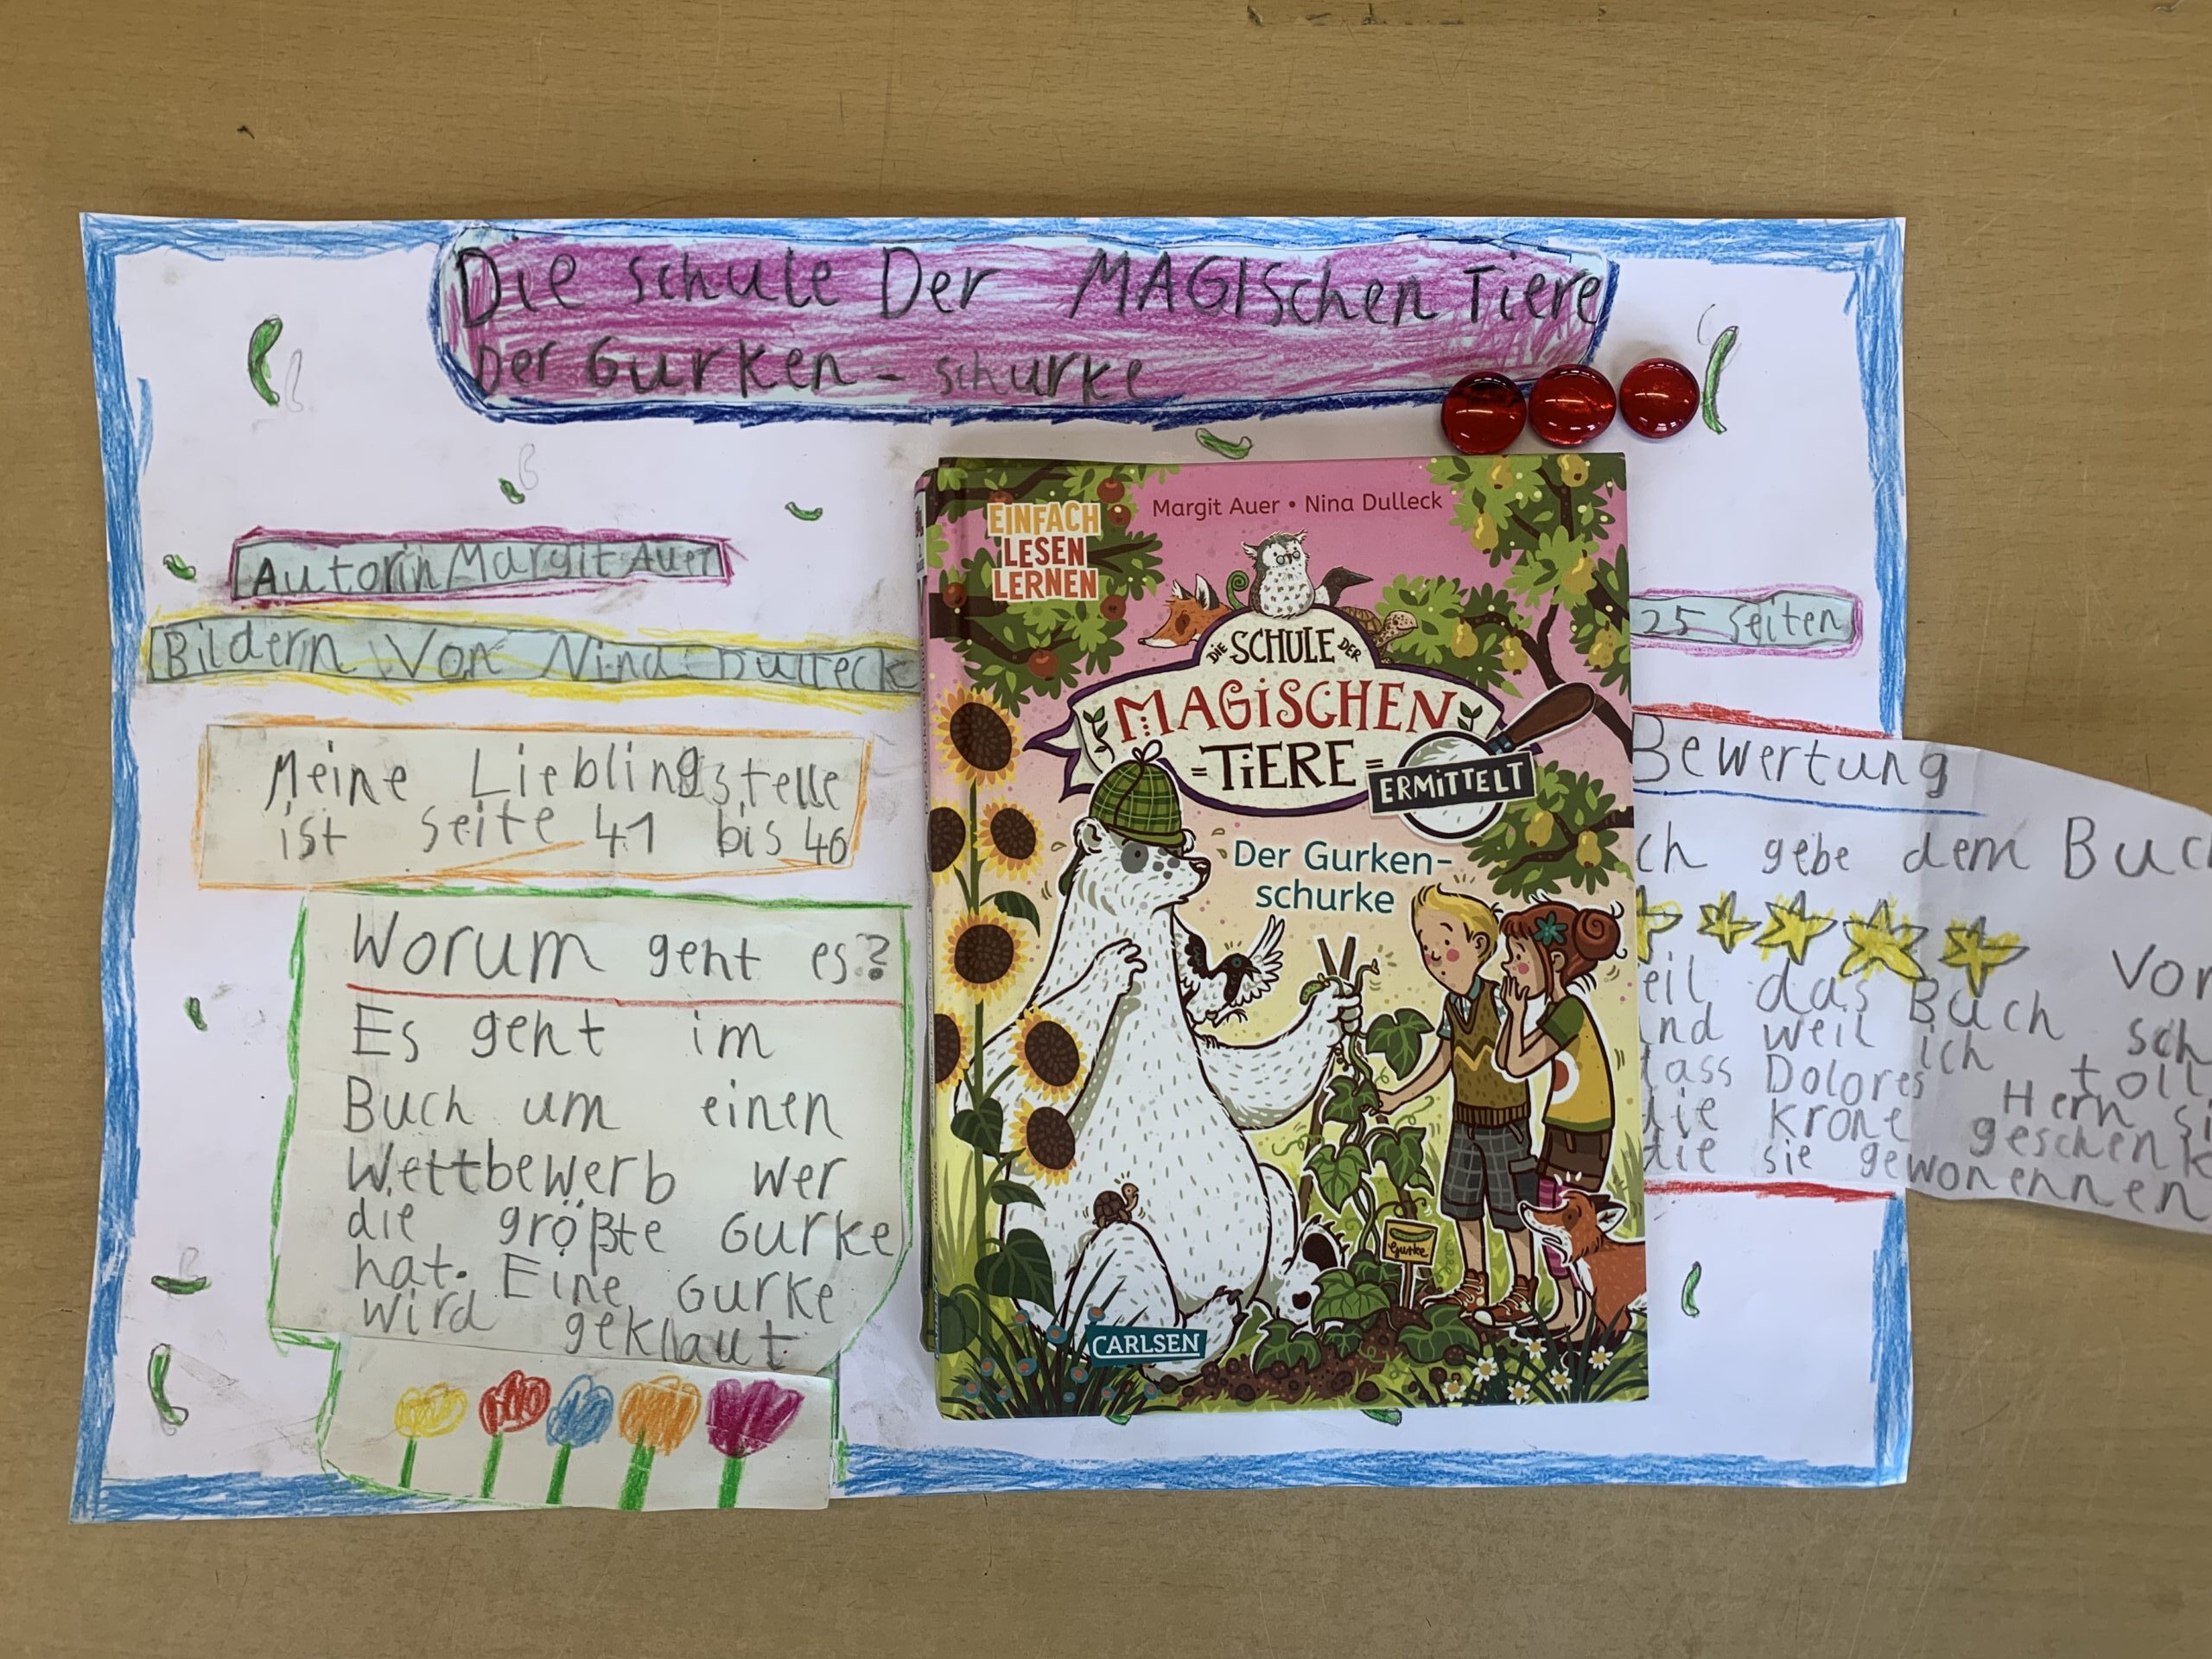 Die schule Der MAGISchen Tiere
Der Gurken - schurke
Autorin Margit Auer
Bildern Von Nina Dulleck
Meine Lieblingstelle
ist seite 41 bis 46
Worum geht es?
Es geht im
Buch um einen
Wettbewerb wer
die größte Gurke
hat. Eine Gurke
wird geklaut
Margit Auer • Nina Dulleck
EINFACH
LESEN
LERNEN
DIE SCHULE DER
MAGISCHEN
TIERE
ERMITTELT
Der Gurken-
schurke
Gurke
CARLSEN
25 Seiten
Bewertung
ch gebe dem Buc
Von
eil das Buch sch
nd weil ich toll
dass Dolores Hern si
die krone geschenk
die sie gewonennen